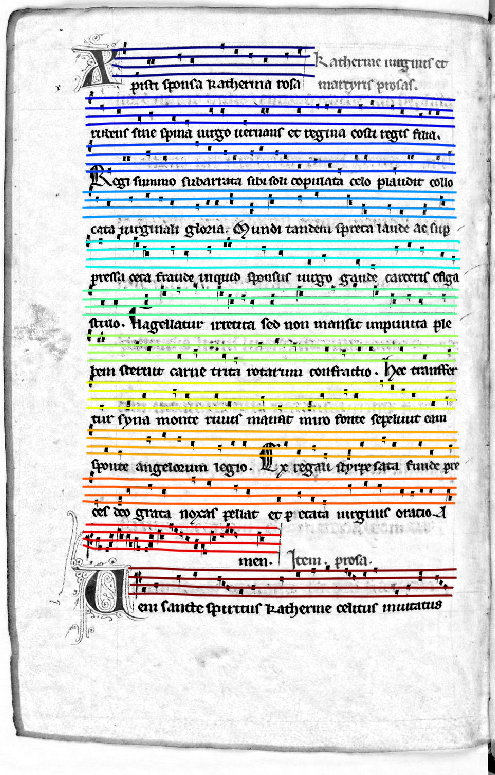 Katherine virginis et
martyris prosas.
Xpisti sponsa katherina rosa
rubens sine spina virgo vernans et regina celi regis filia.
Regi summo subarrata sibi soli copulata celo plaudit collo
cata virginali gloria. Mundi tandem spreta laude ac sup
pressa ceca fraude inquid sponsus virgo gaude carceris
Flagellatur irretita sed non mansit impunita ple
bem sternit carne trita rotarum confractio. Hec transfer
tur syna monte rivus manat miro fonte sepelivit eam
sponte angelorum legio. Ex regali stirpe sata funde pre
ces deo grata noxas pellat et peccata virginis oratio. A
men. Item prosa.
Veni sancte spiritus katherine celitus invitatus